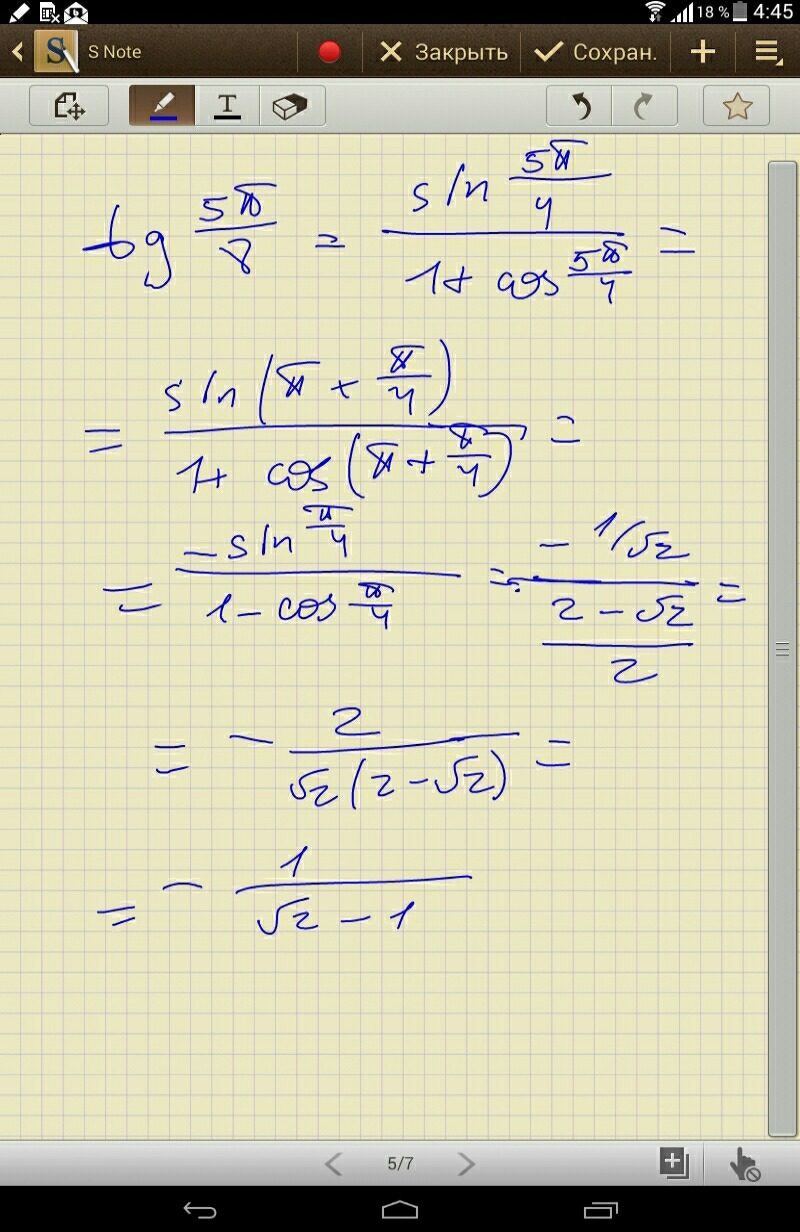 18 % 4:45
S Note Закрыть Сохран.
T
tg 5π/8 = sin 5π/4 / (1 + cos 5π/4) =
= sin(π + π/4) / (1 + cos(π + π/4)) =
= -sin π/4 / (1 - cos π/4) = (- 1/√2) / ((2 - √2) / 2) =
= - 2 / (√2(2 - √2)) =
= - 1 / (√2 - 1)
5/7